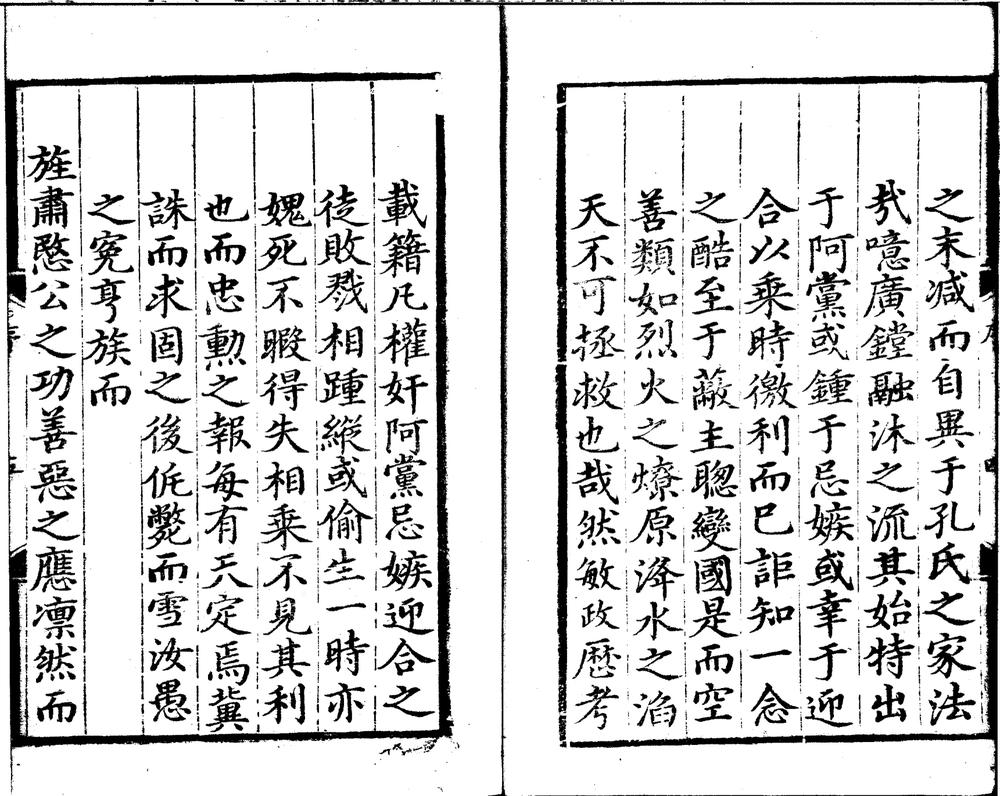 之末减而自異于孔氏之家法
㢤噫廣鏜融沐之流其始特出
于阿黨或鍾于忌嫉或幸于迎
合以乗時徼利而已詎知一念
之酷至于蔽主聰變國是而空
善類如烈火之燎原洚水之滔
天不可拯救也哉然敏政歷考
載籍凡權奸阿黨忌嫉迎合之
徒敗戮相踵縱或偷生一時亦
媿死不暇得失相乗不見其利
也而忠勲之報每有天定焉冀
誅而求固之後侂斃而雪汝愚
之寃亨族而
旌肅愍公之功善惡之應凛然而